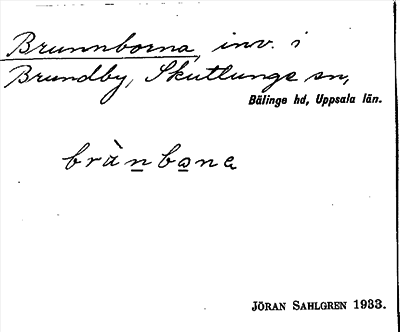 Brunnborna, inv. i
Brundby, Skutlunge sn,
Bälinge hd, Uppsala län.
brànbona
JÖRAN SAHLGREN 1933.